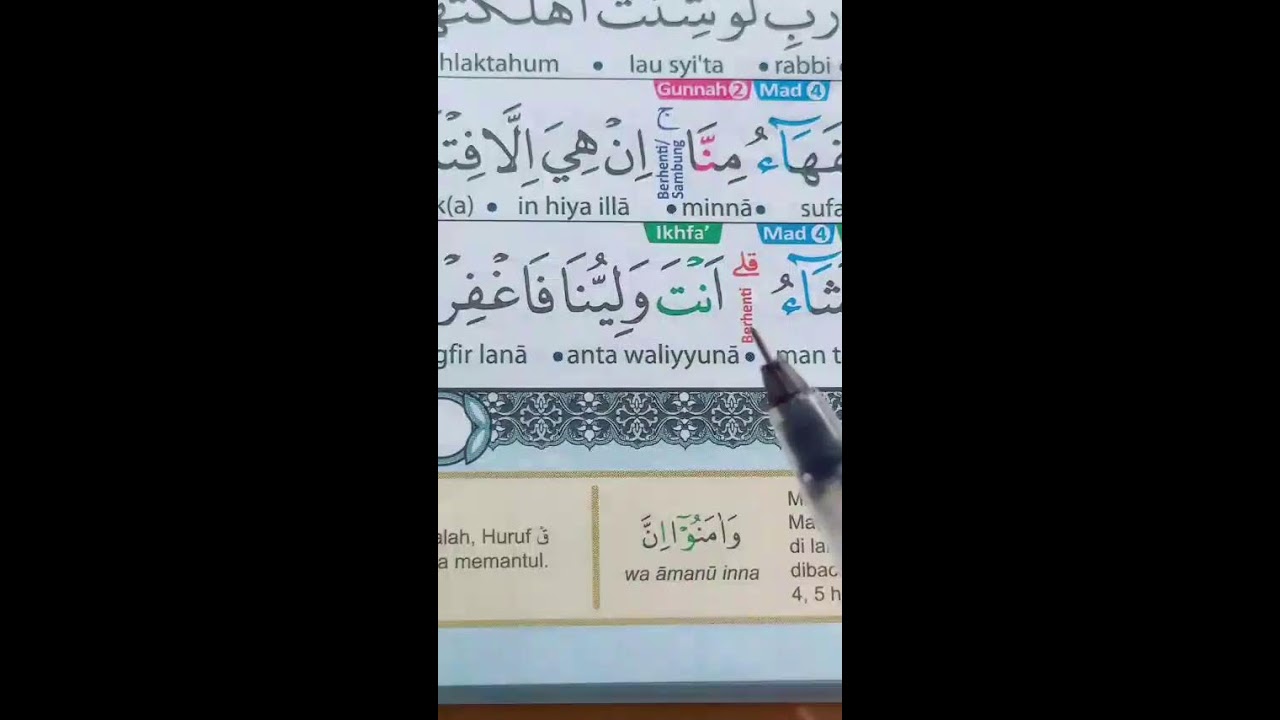 رَبِّ لَوْ شِئْتَ
hlaktahum • lau syi'ta • rabbi
Gunnah 2 Mad 4
مِنَّاۚ اِنْ هِيَ اِلَّا
ج
Berhenti/
Sambung
k(a) • in hiya illā • minnā • sufa
Ikhfa' Mad 4
اَنْتَ وَلِيُّنَا فَاغْفِرْ
قلى
Berhenti
gfir lanā • anta waliyyunā • man t
alah, Huruf قْ
a memantul.
وَاٰمَنُوْٓا اِنَّ
wa āmanū inna
di la
dibac
4, 5 h